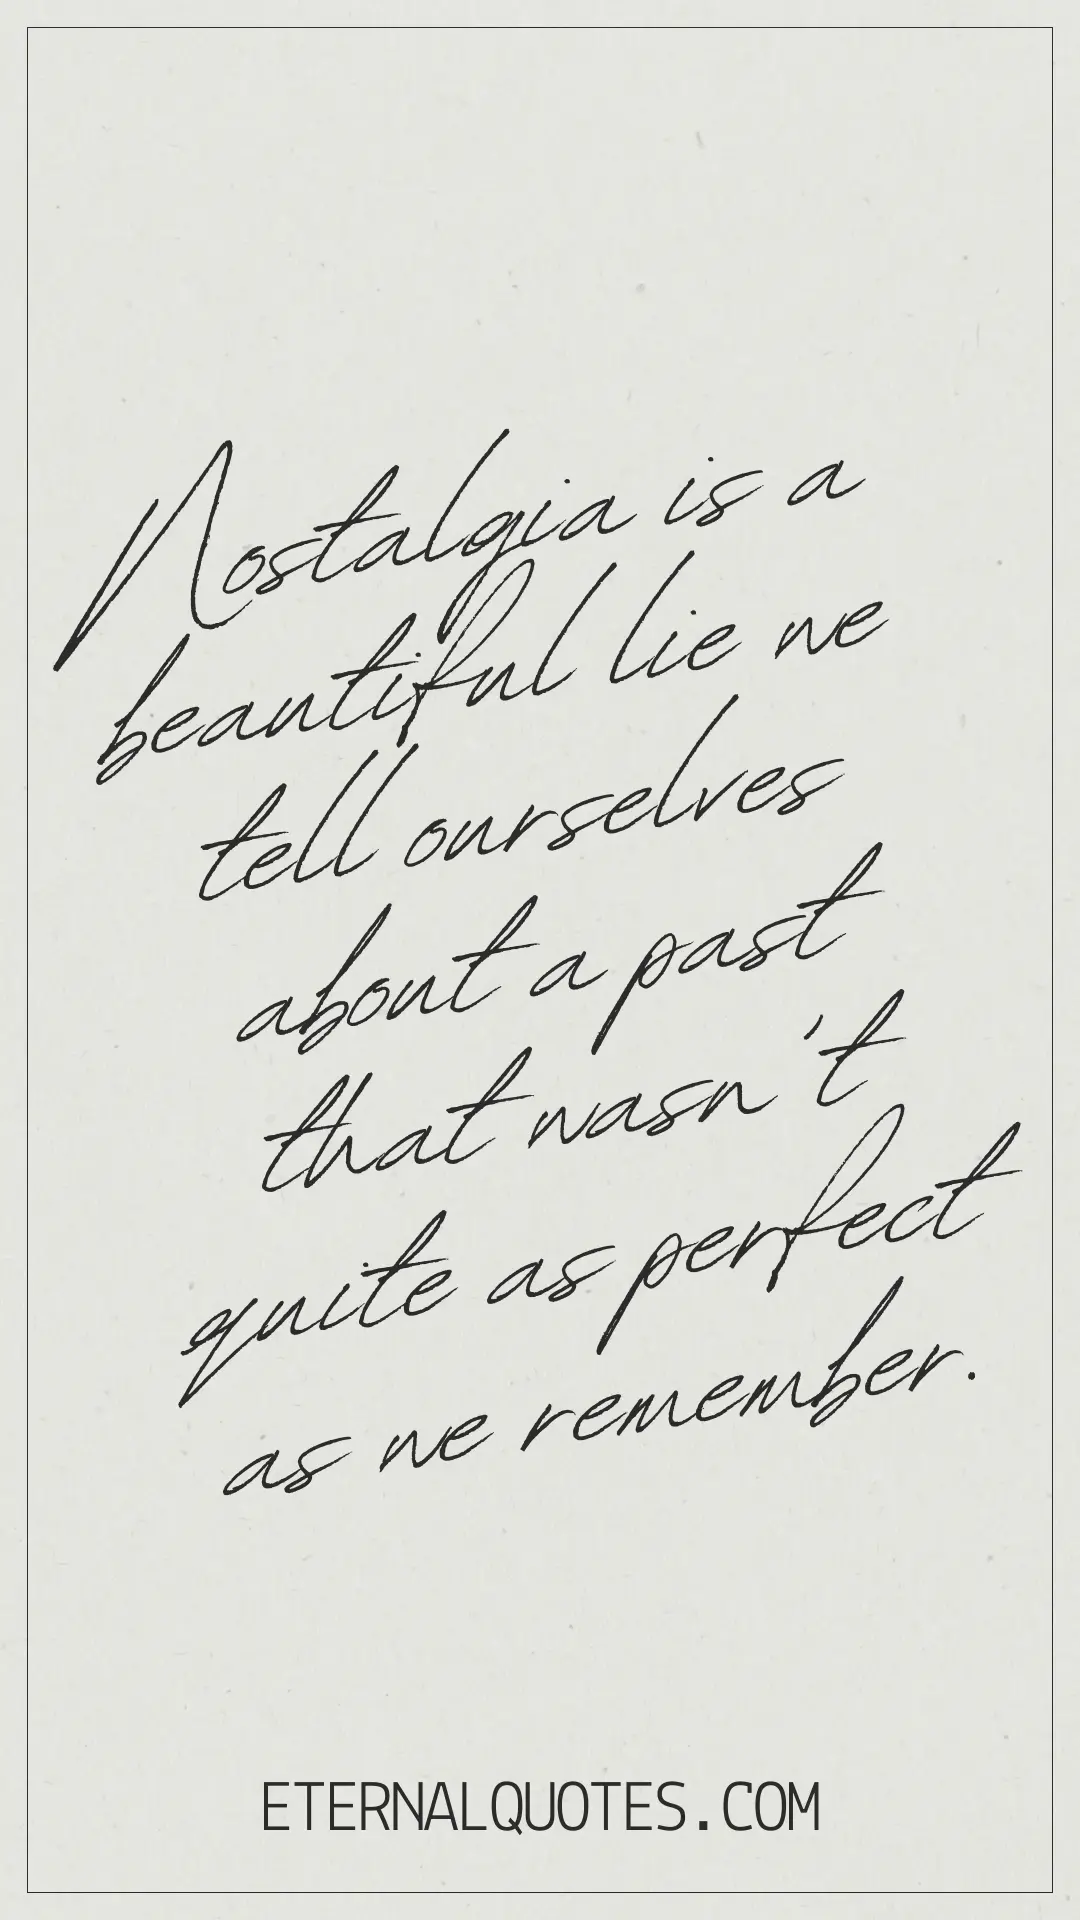 Nostalgia is a
beautiful lie we
tell ourselves
about a past
that wasn't
quite as perfect
as we remember.
ETERNALQUOTES.COM